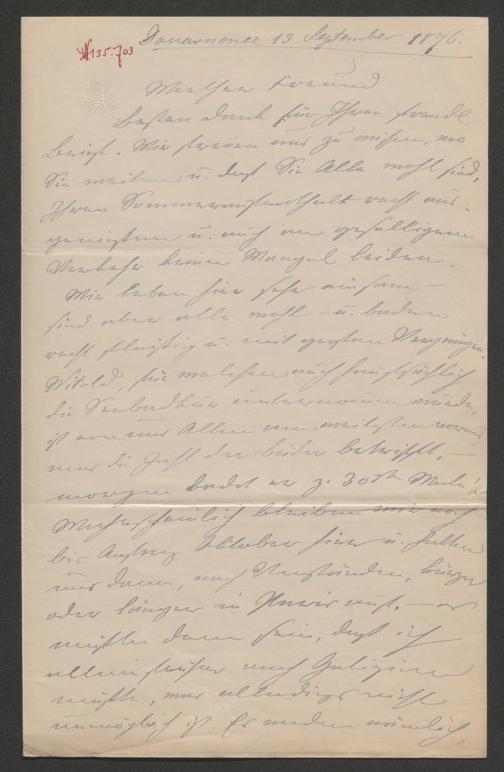 N 135.703
Douarnenez 13 September 1876.
Werther Freund
Besten Dank für Ihren freundl.
Brief. Wir freuen uns zu wissen, wo
Sie weilen u. daß Sie Alle wohl sind,
Ihren Sommeraufenthalt recht aus-
genießen u. auch an geselligem
Verkehr keinen Mangel leiden.
Wir leben hier sehr einsam –
sind aber alle wohl – u. baden
recht fleißig u. mit großem Vergnügen.
Witold, für welchen auch hauptsächlich
die Seebadkur unternommen wurde,
ist von uns Allen am weitesten
was die Zahl der Bäder betrifft, –
morgen badet er z. 30sten Male!
Wahrscheinlich bleiben wir noch
bis Anfang Oktober hier u. halten
uns dann, nach Umständen, kürzer
oder länger in Paris auf, – es
müßte denn sein, daß ich
allein früher nach Galizien
müßte, was allerdings nicht
unmöglich ist. Es werden nämlich